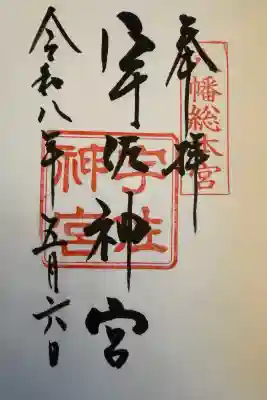 奉拝
八幡総本宮
宇佐神宮
宇佐神宮
令和八年五月六日